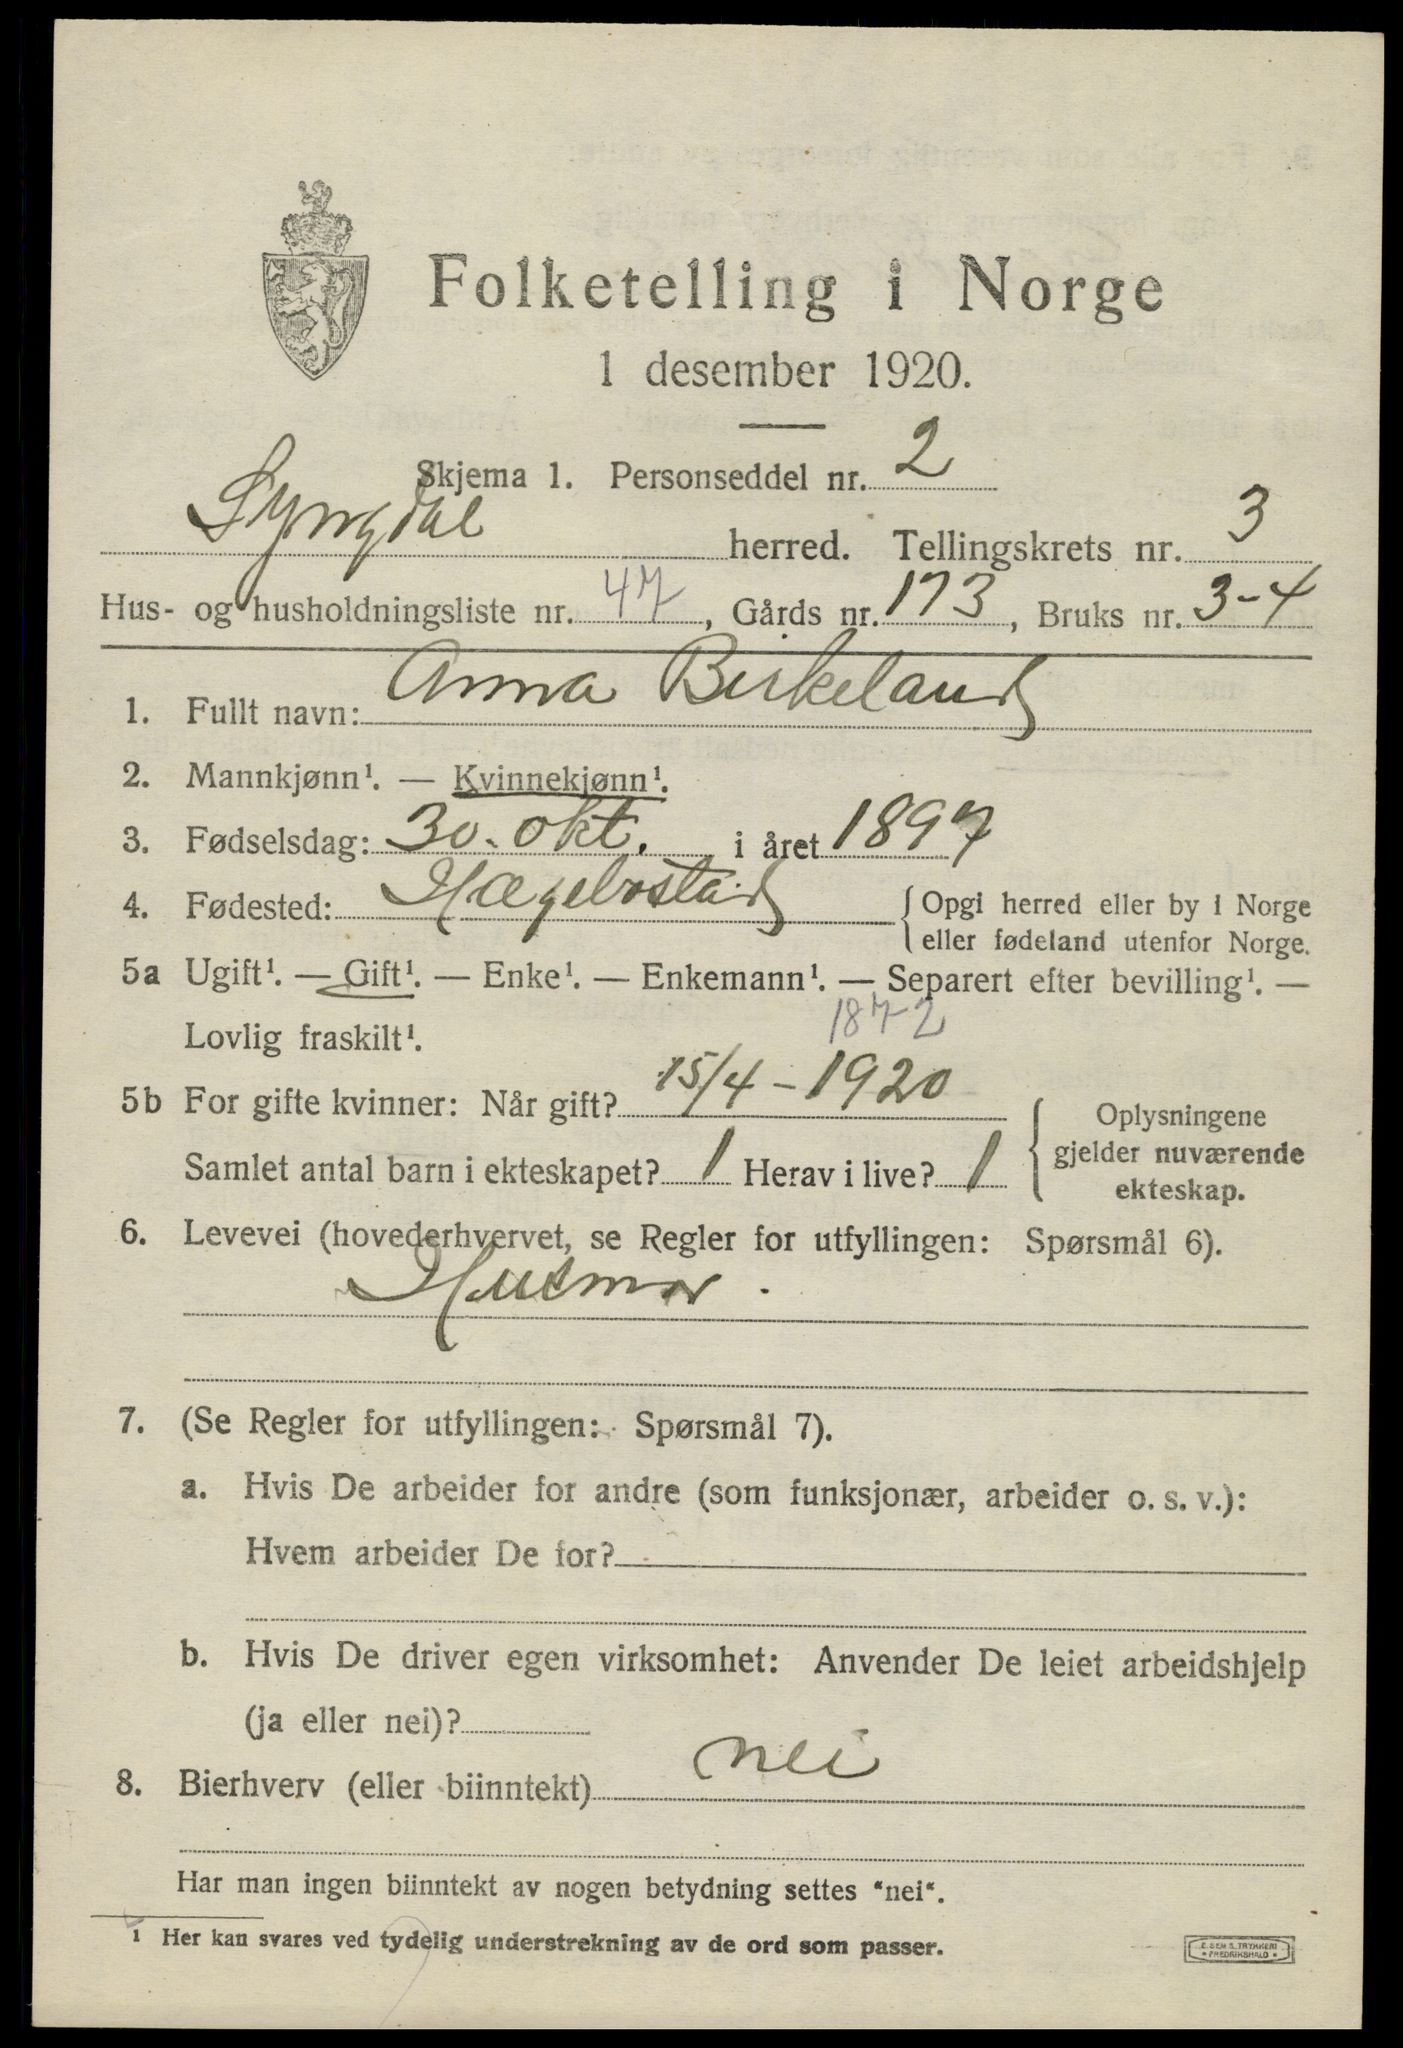 Folketelling i Norge
1 desember 1920.
Skjema 1. Personseddel nr. 2
Lyngdal herred. Tellingskrets nr. 3
Hus- og husholdningsliste nr. 47, Gårds nr. 173, Bruks nr. 3-4
1. Fullt navn: Anna Birkeland
2. Mannkjønn¹. — Kvinnekjønn¹.
3. Fødselsdag: 30. okt. i året 1897
4. Fødested: Hægebostad { Opgi herred eller by i Norge
eller fødeland utenfor Norge.
5a Ugift¹. — Gift¹. — Enke¹. — Enkemann¹. — Separert efter bevilling¹. —
Lovlig fraskilt¹.
1872
5b For gifte kvinner: Når gift? 15/4 - 1920
Samlet antal barn i ekteskapet? 1 Herav i live? 1
{ Oplysningene
gjelder nuværende
ekteskap.
6. Levevei (hovederhvervet, se Regler for utfyllingen: Spørsmål 6).
Husmor.
7. (Se Regler for utfyllingen: Spørsmål 7).
a. Hvis De arbeider for andre (som funksjonær, arbeider o. s. v.):
Hvem arbeider De for?
b. Hvis De driver egen virksomhet: Anvender De leiet arbeidshjelp
(ja eller nei)?
8. Bierhverv (eller biinntekt) nei
Har man ingen biinntekt av nogen betydning settes "nei".
¹ Her kan svares ved tydelig understrekning av de ord som passer.
E. SEM S. TRYKKERI
* FREDRIKSHALD *